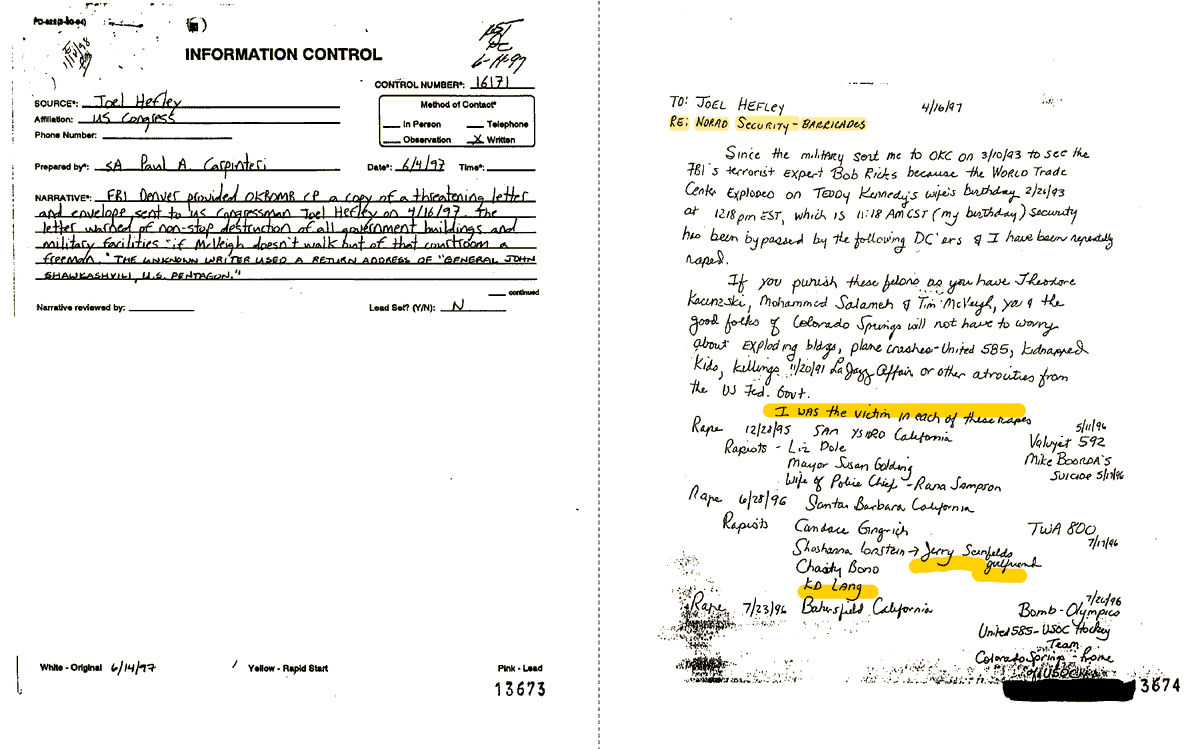 FD-822(2-80-84)
INFORMATION CONTROL
6-14-97
CONTROL NUMBER*: 16171
SOURCE*: Joel Hefley
Affiliation: US Congress
Phone Number:
Method of Contact*
In Person Telephone
Observation X Written
Prepared by*: SA Paul A. Carpinteri Date*: 6/4/97 Time*:
NARRATIVE*: FBI Denver provided OKBOMB CP a copy of a threatening letter
and envelope sent to US Congressman Joel Hefley on 4/16/97. The
letter warned of non-stop destruction of all government buildings and
military facilities "if McVeigh doesn't walk out of that courtroom a
freeman." THE UNKNOWN WRITER USED A RETURN ADDRESS OF "GENERAL JOHN
SHAWKASHVILI, U.S. PENTAGON."
continued
Narrative reviewed by: Lead Set? (Y/N): N
White - Original 6/14/97 Yellow - Rapid Start Pink - Lead
13673
TO: JOEL HEFLEY 4/16/97
RE: NORAD SECURITY-BARRICADES
Since the military sent me to OKC on 3/10/93 to see the
FBI's terrorist expert Bob Ricks because the WORLD TRADE
Center Exploded on TEDDY Kennedy's wife's birthday 2/26/93
at 1218 pm EST, which is 11:18 AM CST (my birthday) security
has been bypassed by the following DC'ers & I have been repeatedly
raped.
If you punish these felons as you have Theodore
Kacinzski, Mohammed Salameh & Tim McVeigh, you & the
good folks of Colorado Springs will not have to worry
about Exploding bldgs, plane crashes-United 585, kidnapped
kids, killings 11/20/91 La Jazz Affair or other atrocities from
the US Fed. Govt.
I was the victim in each of these rapes
Rape 12/28/95 SAN YSIDRO California
5/11/96
Valujet 592
Mike BOORDA'S
SUICIDE 5/17/96
Rapists - Liz Dole
Mayor Susan Golding
Wife of Police Chief - Rana Sampson
Rape 6/28/96 Santa Barbara California
Rapists Candace Gingrich
TWA 800
7/17/96
Shoshanna Lonstein → Jerry Seinfelds
girlfriend
Chasity Bono
KD LANG
Rape 7/23/96 Bakersfield California
7/26/96
Bomb - Olympics
United 585 - USOC Hockey
Team
Colorado Springs - home
3674